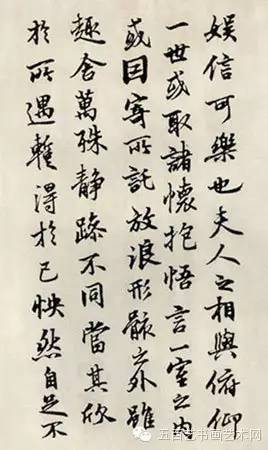 娱信可樂也夫人之相與俯仰
一世或取諸懷抱悟言一室之内
或因寄所託放浪形骸之外雖
趣舍萬殊静躁不同當其欣
於所遇蹔得於己怏然自足不
五百艺书画艺术网